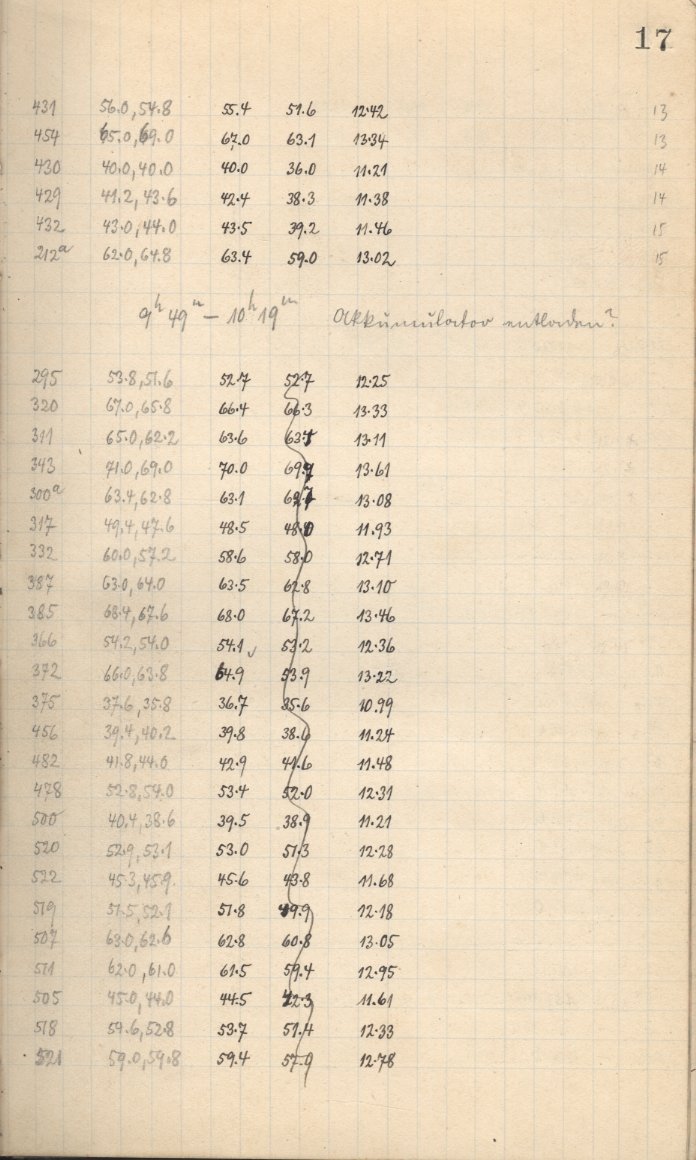 17
431 56.0, 54.8 55.4 51.6 12.42 13
454 65.0, 69.0 67.0 63.1 13.34 13
430 40.0, 40.0 40.0 36.0 11.21 14
429 41.2, 43.6 42.4 38.3 11.38 14
432 43.0, 44.0 43.5 39.2 11.46 15
212a 62.0, 64.8 63.4 59.0 13.02 15
9h 49m – 10h 19m Akkumulator entladen?
295 53.8, 51.6 52.7 52.7 12.25
320 67.0, 65.8 66.4 66.3 13.33
311 65.0, 62.2 63.6 13.11
343 71.0, 69.0 70.0 13.61
300a 63.4, 62.8 63.1 13.08
317 49.4, 47.6 48.5 11.93
332 60.0, 57.2 58.6 58.0 12.71
387 63.0, 64.0 63.5 62.8 13.10
385 68.4, 67.6 68.0 67.2 13.46
366 54.2, 54.0 54.1 53.2 12.36
372 66.0, 63.8 64.9 53.9 13.22
375 37.6, 35.8 36.7 35.6 10.99
456 39.4, 40.2 39.8 38.6 11.24
482 41.8, 44.0 42.9 41.6 11.48
478 52.8, 54.0 53.4 52.0 12.31
500 40.4, 38.6 39.5 38.9 11.21
520 52.9, 53.1 53.0 51.3 12.28
522 45.3, 45.9 45.6 43.8 11.68
519 51.5, 52.1 51.8 49.9 12.18
507 63.0, 62.6 62.8 60.8 13.05
511 62.0, 61.0 61.5 59.4 12.95
505 45.0, 44.0 44.5 42.3 11.61
518 54.6, 52.8 53.7 51.4 12.33
521 59.0, 59.8 59.4 57.9 12.78